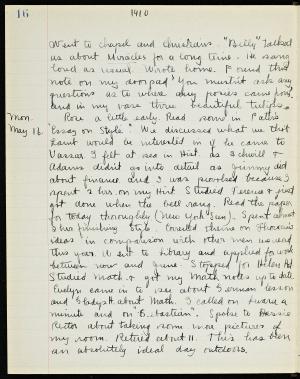 16
1910
Went to chapel and Christians. "Billy" talked
us about Miracles for a long time. He sang
loud as usual. Wrote home. Found this
note on my door pad "You mustn't ask any
questions as to where any posies come from"
and in my vase three beautiful tulips.
Mon.
May 16.
Rose a little early. Read some in Pater's
"Essay on Style." We discussed what we that
Kant would be interested in if he came to
Vassar. I felt at sea in Hist. as I
Adams didn't go into detail as
about finance and I was puzzled because I
spent 2 hrs. on my Hist. Studied Terence & just
got done when the bell rang. Read the paper
for today thoroughly (New York Sun). Spent almost
2 hrs finishing Style. Horatius
ideas in comparison with other men we read
this year. Went to Library and applied for work
between now and June. Stopped for Helen H.
Studied Math. & got my Math. notes up to date.
Evelyn came in to see about German lesson
and Gladys H. about Math. I called on Laura a
minute and on "B. astian". Spoke to Bessie
Rector about taking some more pictures of
my room. Retired about 11. This has been
an absolutely ideal day outdoors.